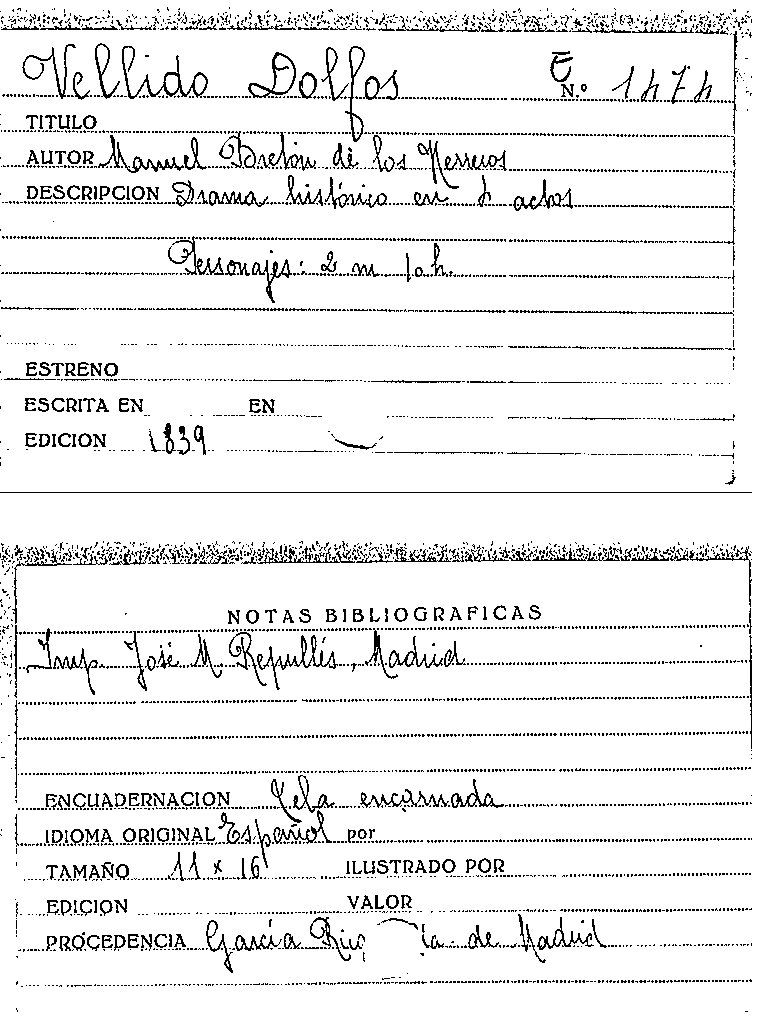 Vellido Dolfos E N.º 1474
TITULO
AUTOR Manuel Bretón de los Herreros
DESCRIPCION Drama histórico en 4 actos
Personajes: 2 m 10 h.
ESTRENO
ESCRITA EN EN
EDICION 1839
NOTAS BIBLIOGRAFICAS
Imp. José M. Repullés, Madrid
ENCUADERNACION Tela encarnada
IDIOMA ORIGINAL Español por
TAMAÑO 11 x 16 ILUSTRADO POR
EDICION VALOR
PROCEDENCIA García de Madrid